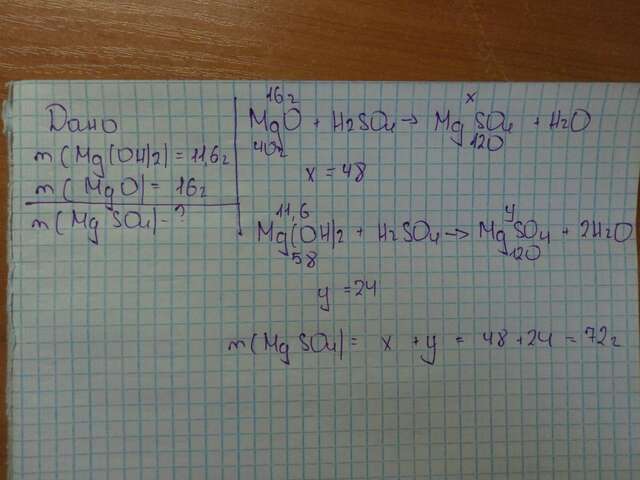 Дано
m(Mg(OH)2)=11,6г
m(MgO)=16г
m(MgSO4)-?
16г x
MgO + H2SO4→ MgSO4 + H2O
40г 120
x = 48
11,6 y
Mg(OH)2 + H2SO4→ MgSO4 + 2H2O
58 120
y = 24
m(MgSO4)= x + y = 48+24 = 72г